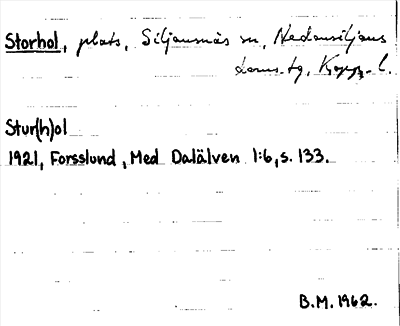 Storhol, plats, Siljansnäs sn, Nedansiljans
doms.tg, Kopp. l.
Stur(h)ol
1921, Forsslund, Med Dalälven 1:6, s. 133.
B.M. 1962.